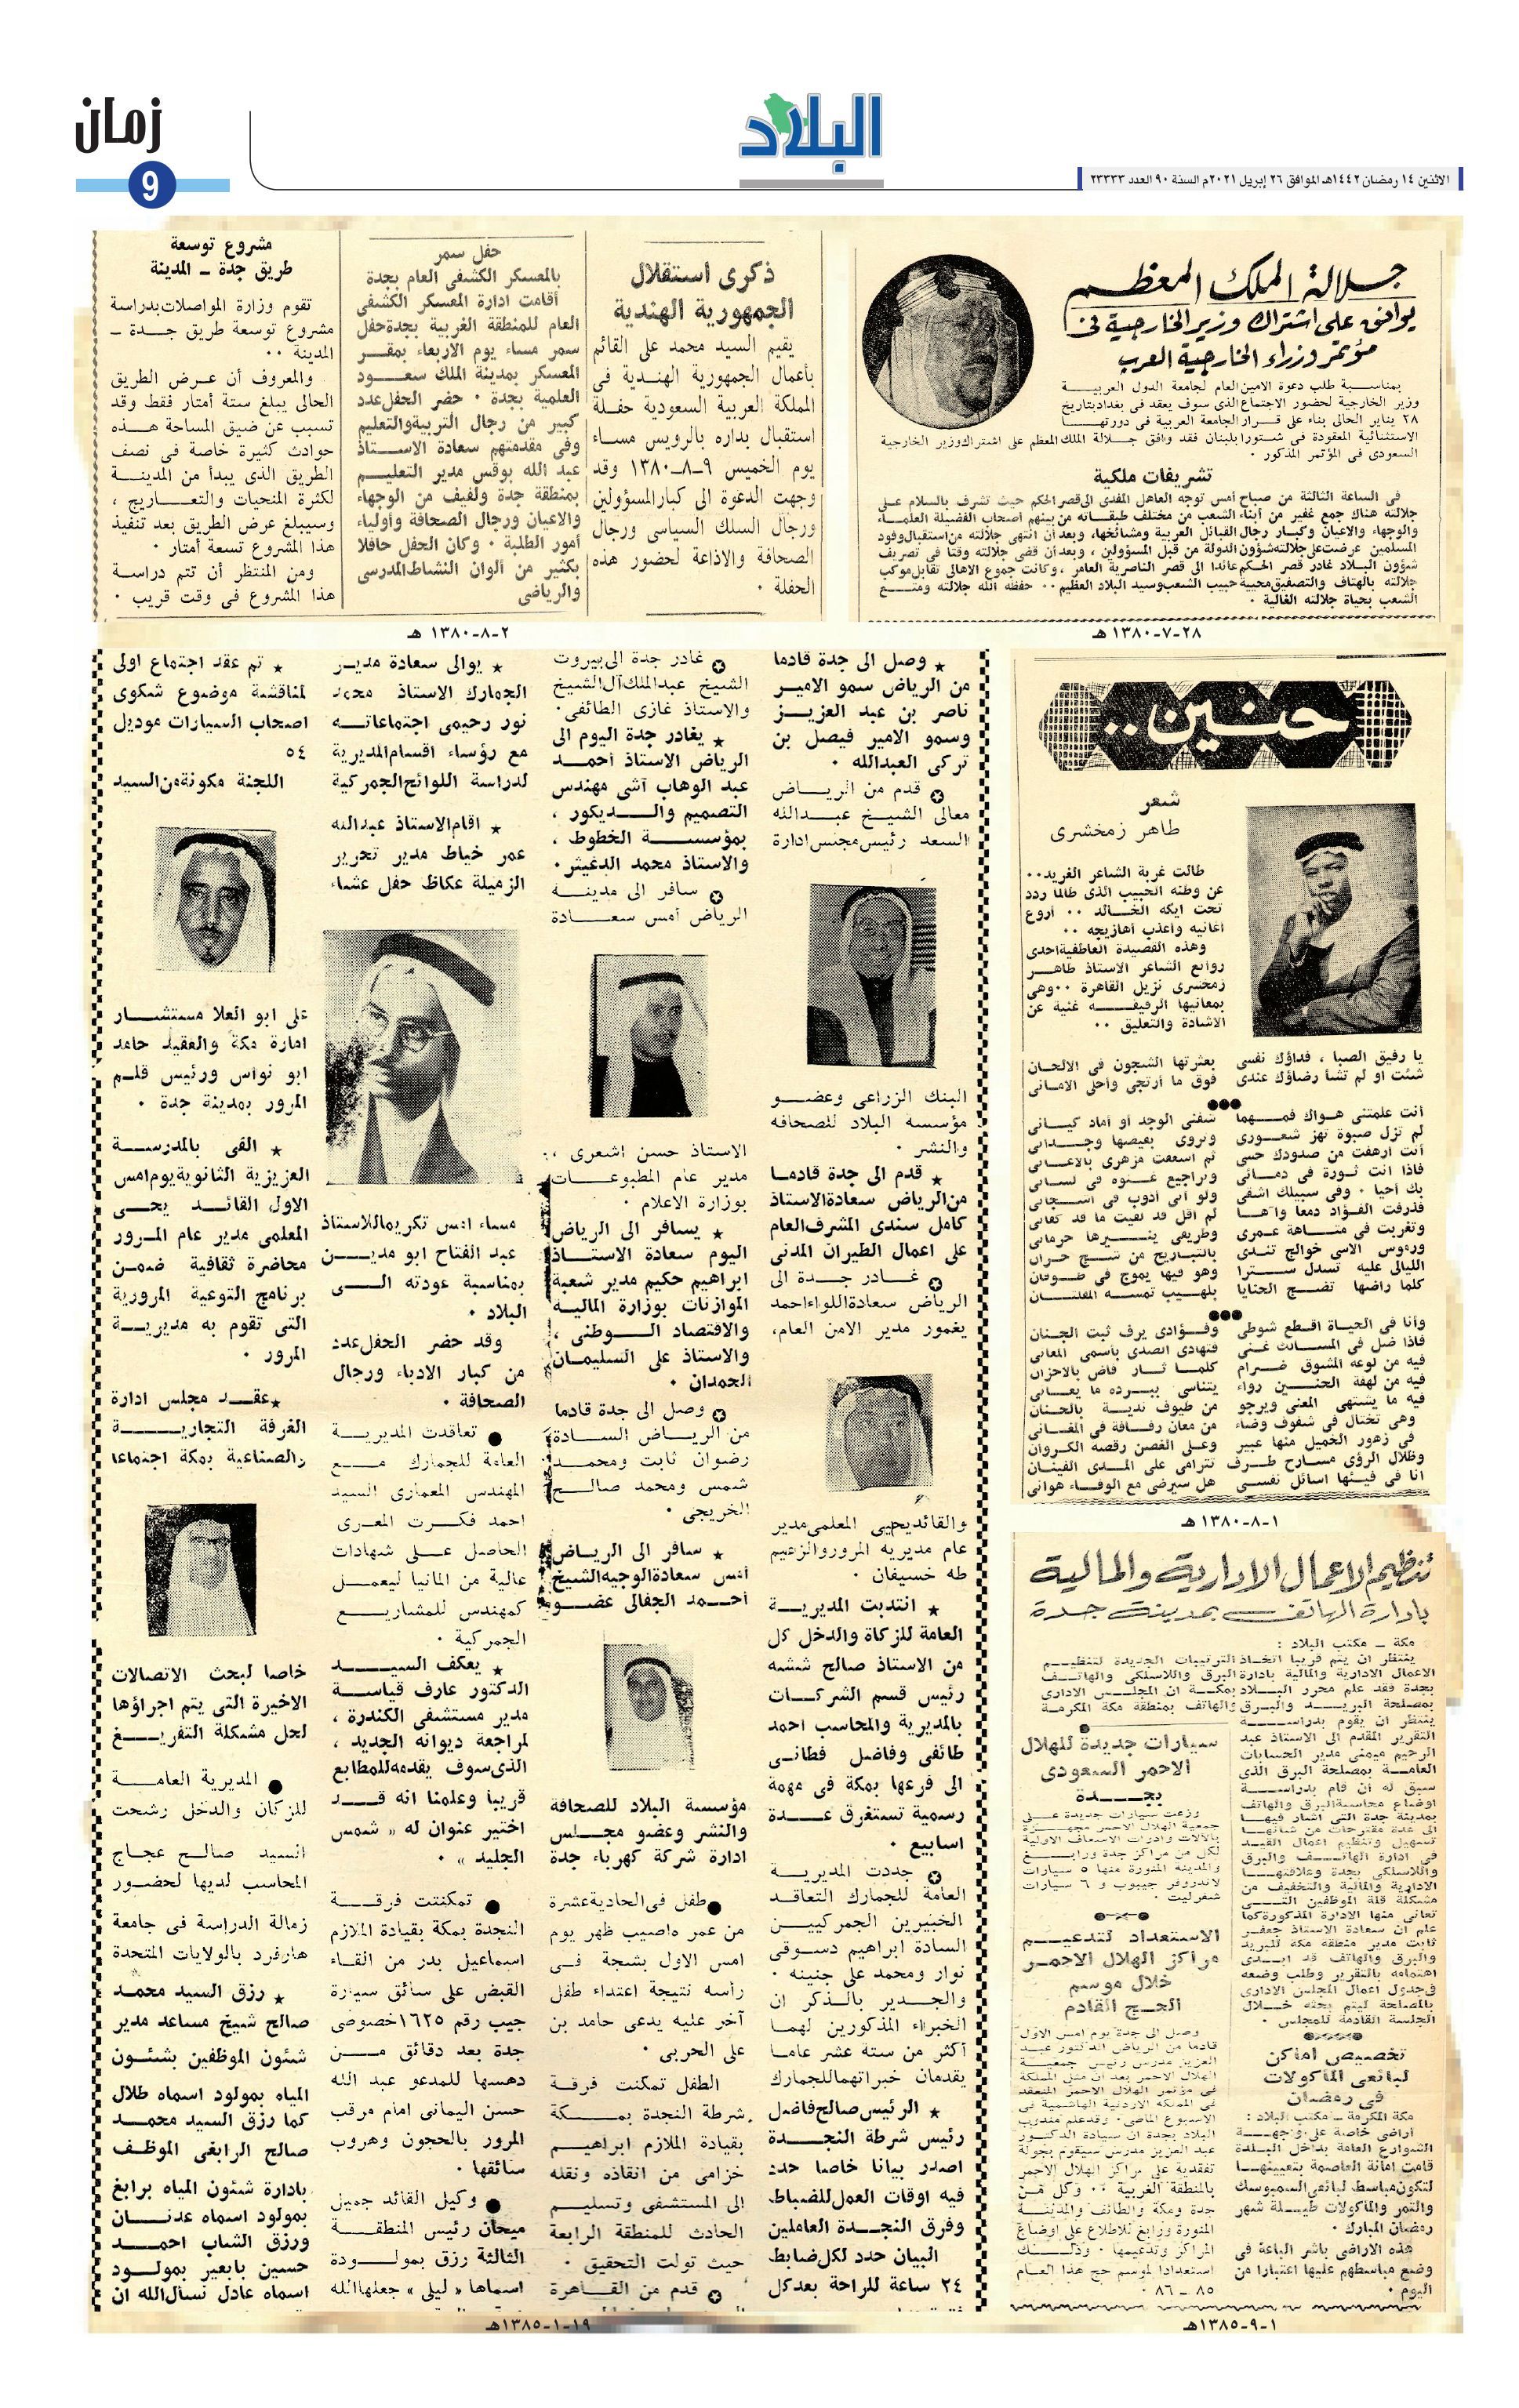 البلاد
زمان
9
الاثنين ١٤ رمضان ١٤٤٢هـ الموافق ٢٦ إبريل ٢٠٢١م السنة ٩٠ العدد ٢٣٣٣٣
جلالة الملك المعظم
يوافق على اشتراك وزير الخارجية فى
مؤتمر وزراء الخارجية العرب
بمناسبة طلب دعوة الامين العام لجامعة الدول العربية
وزير الخارجية لحضور الاجتماع الذى سوف يعقد فى بغداد بتاريخ
٢٨ يناير الحالى بناء على قرار الجامعة العربية فى دورتها
الاستثنائية المعقودة فى شتورا بلبنان فقد وافق جلالة الملك المعظم على اشتراك وزير الخارجية
السعودى فى المؤتمر المذكور ٠
تشريفات ملكية
فى الساعة الثالثة من صباح أمس توجه العاهل المفدى الى قصر الحكم حيث تشرف بالسلام على
جلالته هناك جمع غفير من أبناء الشعب من مختلف طبقاته من بينهم اصحاب الفضيلة العلماء
والوجهاء والاعيان وكبار رجال القبائل العربية ومشائخها، وبعد أن انتهى جلالته من استقبال وفود
المسلمين عرضت على جلالته شؤون الدولة من قبل المسؤولين ، وبعد أن قضى جلالته وقتا فى تصريف
شؤون البلاد غادر قصر الحكم عائدا الى قصر الناصرية العامر ، وكانت جموع الاهالى تقابل موكب
جلالته بالهتاف والتصفيق محيية حبيب الشعب وسيد البلاد العظيم ٠٠ حفظه الله جلالته ومتع
الشعب بحياة جلالته الغالية ٠
٢٨-٧-١٣٨٠ هـ
ذكرى استقلال
الجمهورية الهندية
يقيم السيد محمد على القائم
بأعمال الجمهورية الهندية فى
المملكة العربية السعودية حفلة
استقبال بداره بالرويس مساء
يوم الخميس ٩-٨-١٣٨٠ وقد
وجهت الدعوة الى كبار المسؤولين
ورجال السلك السياسى ورجال
الصحافة والاذاعة لحضور هذه
الحفلة ٠
حفل سمر
بالمعسكر الكشفى العام بجدة
أقامت ادارة المعسكر الكشفى
العام للمنطقة الغربية بجدة حفل
سمر مساء يوم الاربعاء بمقر
المعسكر بمدينة الملك سعود
العلمية بجدة ٠ حضر الحفل عدد
كبير من رجال التربية والتعليم
وفى مقدمتهم سعادة الاستاذ
عبد الله بوقس مدير التعليم
بمنطقة جدة ولفيف من الوجهاء
والاعيان ورجال الصحافة وأولياء
أمور الطلبة ٠ وكان الحفل حافلا
بكثير من ألوان النشاط المدرسى
والرياضى
مشروع توسعة
طريق جدة - المدينة
تقوم وزارة المواصلات بدراسة
مشروع توسعة طريق جدة -
المدينة ٠٠
والمعروف أن عرض الطريق
الحالى يبلغ ستة أمتار فقط وقد
تسبب عن ضيق المساحة هذه
حوادث كثيرة خاصة فى نصف
الطريق الذى يبدأ من المدينة
لكثرة المنحنيات والتعاريج ،
وسيبلغ عرض الطريق بعد تنفيذ
هذا المشروع تسعة أمتار ٠
ومن المنتظر أن تتم دراسة
هذا المشروع فى وقت قريب ٠
٢-٨-١٣٨٠ هـ
حنين..
شعر
طاهر زمخشرى
طالت غربة الشاعر الغريد٠٠
عن وطنه الحبيب الذى طالما ردد
تحت ايكه الخالد ٠٠ أروع
اغانيه وأعذب أهازيجه ٠٠
وهذه القصيدة العاطفية احدى
روائع الشاعر الاستاذ طاهر
زمخشرى نزيل القاهرة ٠٠ وهى
بمعانيها الرقيقه غنية عن
الاشادة والتعليق ٠٠
يا رفيق الصبا ، فداؤك نفسى بعثرتها الشجون فى الالحان
شئت او لم تشأ رضاؤك عندى فوق ما أرتجى وأحلى الامانى
أنت علمتنى هواك فمهما شفنى الوجد او أماد كيانى
لم تزل صبوة تهز شعورى وتروى بفيضها وجدانى
أنت أرهفت من صدودك حسى ثم اسعفت مزهرى بالاغانى
فاذا انت ثورة فى دمائى
بك أحيا ٠ وفى سبيلك اشقى ولو انى أذوب فى اشجانى
فذرفت الفؤاد دمعا وآها لم اقل قد لقيت ما قد كفانى
وتغربت فى متاهة عمرى وطريقى ينيرها حرمانى
الليالى عليه تسدل سترا وهو فيها يموج فى طوفان
وأنا فى الحياة اقطع شوطى وفؤادى يرف ثبت الجنان
فيه من لوعه المشوق ضرام كلما ثار فاض بالاحزان
فيه من لهفة الحنين رواء يتناسى ببرده ما يعانى
فيه ما يشتهى المعنى ويرجو من طيوف ندية بالحنان
وهى تختال فى شفوف وضاء من معان رفافة فى المغانى
فى زهور الخميل منها عبير وعلى الغصن رقصه الكروان
وظلال الرؤى مسارح طرف تترامى على المدى الفينان
انا فى فيئها اسائل نفسى هل سيرضى مع الوفاء هوانى
١-٨-١٣٨٠ هـ
تنظيم الاعمال الادارية والمالية
بادارة الهاتف بمدينة جدة
مكة - مكتب البلاد :
ينتظر ان يتم قريبا اتخاذ الترتيبات الجديدة لتنظيم
الاعمال الادارية والمالية بادارة البرق واللاسلكى والهاتف
بجدة فقد علم محرر البلاد بمكة ان المجلس الادارى
بمصلحة البريد والبرق والهاتف بمنطقة مكة المكرمة
ينتظر ان يقوم بدراسة
التقرير المقدم الى الاستاذ عبد
الرحيم ميمنى مدير الحسابات
العامة بمصلحة البرق الذى
سبق له أن قام بدراسة
اوضاع محاسبة البرق والهاتف
بمدينة جدة التى اشار فيها
الى عدة مقترحات من شانها
تسهيل وتنظيم اعمال القيد
فى ادارة الهاتف والبرق
واللاسلكى بجدة وعلاقتها
الادارية والمالية والتخفيف من
مشكلة قلة الموظفين التى
تعانى منها الادارة المذكورة كما
علم ان سعادة الاستاذ جعفر
ثابت مدير منطقة مكة للبريد
والبرق والهاتف قد ابدى
اهتمامه بالتقرير وطلب وضعه
فى جدول اعمال المجلس الادارى
بالمصلحة ليتم بحثه خلال
الجلسة القادمة للمجلس ٠
تخصيص اماكن
لبائعى الماكولات
فى رمضان
مكة المكرمة - مكتب البلاد :
أراضى خاصة على واجهة
الشوارع العامة بداخل البلدة
قامت امانة العاصمة بتعيينها
لتكون مباسط لبائعى السمبوسك
والتمر والماكولات طيلة شهر
رمضان المبارك ٠
هذه الاراضى باشر الباعة فى
وضع مباسطهم عليها اعتبارا من
اليوم ٠
سيارات جديدة للهلال
الاحمر السعودى
بجدة
وزعت سيارات جديدة على
جمعية الهلال الاحمر مجهزة
بالآلات وادوات الاسعاف الاولية
لكل من مراكز جدة ورابغ
والمدينة المنورة منها ٥ سيارات
لاندروفر جيبوب و ٦ سيارات
شفرليت ٠
الاستعداد لتدعيم
مراكز الهلال الاحمر
خلال موسم
الحج القادم
وصل الى جدة يوم امس الاول
قادما من الرياض الدكتور عبد
العزيز مدرس رئيس جمعية
الهلال الاحمر بعد ان مثل المملكة
فى مؤتمر الهلال الاحمر المنعقد
فى المملكة الاردنية الهاشمية فى
الاسبوع الماضى ٠ وقد علم مندوب
البلاد بجدة ان سيادة الدكتور
عبد العزيز مدرس سيقوم بجولة
تفقدية على مراكز الهلال الاحمر
بالمنطقة الغربية ٠٠ وكل من
جدة ومكة والطائف والمدينة
المنورة ورابغ للاطلاع على اوضاع
المراكز وتدعيمها ٠ وذلك
استعدادا لموسم حج هذا العام
٨٥ - ٨٦ ٠
١-٩-١٣٨٥هـ
★ وصل الى جدة قادما
من الرياض سمو الامير
ناصر بن عبد العزيز
وسمو الامير فيصل بن
تركى العبدالله ٠
✪ قدم من الرياض
معالى الشيخ عبدالله
السعد رئيس مجلس ادارة
البنك الزراعى وعضو
مؤسسه البلاد للصحافه
والنشر ٠
★ قدم الى جدة قادما
من الرياض سعادة الاستاذ
كامل سندى المشرف العام
على اعمال الطيران المدنى
✪ غادر جدة الى
الرياض سعادة اللواء احمد
يغمور مدير الامن العام،
والقائد يحيى المعلمى مدير
عام مديريه المرور والزعيم
طه خسيفان ٠
★ انتدبت المديرية
العامة للزكاة والدخل كل
من الاستاذ صالح ششه
رئيس قسم الشركات
بالمديرية والمحاسب احمد
طائفى وفاضل فطانى
الى فرعها بمكة فى مهمة
رسمية تستغرق عدة
اسابيع ٠
✪ جددت المديرية
العامة للجمارك التعاقد
الخبيرين الجمركيين
السادة ابراهيم دسوقى
نوار ومحمد على جنينه ٠
والجدير بالذكر ان
الخبراء المذكورين لهما
أكثر من ستة عشر عاما
يقدمان خبراتهما للجمارك
★ الرئيس صالح فاضل
رئيس شرطة النجدة
اصدر بيانا خاصا حدد
فيه اوقات العمل للضباط
وفرق النجدة العاملين
البيان حدد لكل ضابط
٢٤ ساعة للراحة بعد كل
✪ غادر جدة الى بيروت
الشيخ عبدالملك آل الشيخ
والاستاذ غازى الطائفى٠
★ يغادر جدة اليوم الى
الرياض الاستاذ أحمد
عبد الوهاب آشى مهندس
التصميم والديكور ،
بمؤسسة الخطوط ،
والاستاذ محمد الدغيثر٠
✪ سافر الى مدينة
الرياض أمس سعادة
الاستاذ حسن اشعرى ،
مدير عام المطبوعات
بوزارة الاعلام ٠
★ يسافر الى الرياض
اليوم سعادة الاستاذ
ابراهيم حكيم مدير شعبة
الموازنات بوزارة المالية
والاقتصاد الوطنى ،
والاستاذ على السليمان
الحمدان ٠
✪ وصل الى جدة قادما
من الرياض السادة
رضوان ثابت ومحمد
شمس ومحمد صالح
الخريجى ٠
★ سافر الى الرياض
أمس سعادة الوجيه الشيخ
أحمد الجفالى عضو
مؤسسة البلاد للصحافة
والنشر وعضو مجلس
ادارة شركة كهرباء جدة
● طفل فى الحادية عشرة
من عمره اصيب ظهر يوم
امس الاول بشجة فى
رأسه نتيجة اعتداء طفل
آخر عليه يدعى حامد بن
على الحربى ٠
الطفل تمكنت فرقة
شرطة النجدة بمكة
بقيادة الملازم ابراهيم
خزامى من انقاذه ونقله
الى المستشفى وتسليم
الحادث للمنطقة الرابعة
حيث تولت التحقيق ٠
✪ قدم من القاهرة
★ يوالى سعادة مدير
الجمارك الاستاذ محمد
نور رحيمى اجتماعاته
مع رؤساء اقسام المديرية
لدراسة اللوائح الجمركية
★ اقام الاستاذ عبدالله
عمر خياط مدير تحرير
الزميلة عكاظ حفل عشاء
مساء امس تكريما للاستاذ
عبد الفتاح ابو مدين
بمناسبة عودته الى
البلاد ٠
وقد حضر الحفل عدد
من كبار الادباء ورجال
الصحافة ٠
● تعاقدت المديرية
العامة للجمارك مع
المهندس المعمارى السيد
احمد فكرت المعرى
الحاصل على شهادات
عالية من المانيا ليعمل
كمهندس للمشاريع
الجمركية ٠
★ يعكف السيد
الدكتور عارف قياسة
مدير مستشفى الكندرة ،
لمراجعة ديوانه الجديد ،
الذى سوف يقدمه للمطابع
قريبا وعلمنا انه قد
اختير عنوان له « شمس
الجليد » ٠
● تمكنت فرقة
النجدة بمكة بقيادة الملازم
اسماعيل بدر من القاء
القبض على سائق سيارة
جيب رقم ١٦٢٥ خصوصى
جدة بعد دقائق من
دهسها للمدعو عبد الله
حسن اليمانى امام مرقب
المرور بالحجون وهروب
سائقها ٠
● وكيل القائد جميل
ميحان رئيس المنطقة
الثالثة رزق بمولودة
اسماها « ليلى » جعلها الله
★ تم عقد اجتماع اولى
لمناقشة موضوع شكوى
اصحاب السيارات موديل
٥٤
اللجنة مكونة من السيد
على ابو العلا مستشار
امارة مكة والعقيد حامد
ابو نواس ورئيس قلم
المرور بمدينة جدة ٠
★ القى بالمدرسة
العزيزية الثانوية يوم امس
الاول القائد يحيى
المعلمى مدير عام المرور
محاضرة ثقافية ضمن
برنامج التوعية المرورية
التى تقوم به مديرية
المرور ٠
★ عقد مجلس ادارة
الغرفة التجارية
والصناعية بمكة اجتماعا
خاصا لبحث الاتصالات
الاخيرة التى يتم اجراؤها
لحل مشكلة التفريغ
● المديرية العامة
للزكاة والدخل رشحت
السيد صالح عجاج
المحاسب لديها لحضور
زمالة الدراسة فى جامعة
هارفرد بالولايات المتحدة
★ رزق السيد محمد
صالح شيخ مساعد مدير
شئون الموظفين بشئون
المياه بمولود اسماه طلال
كما رزق السيد محمد
صالح الرابغى الموظف
بادارة شئون المياه برابغ
بمولود اسماه عدنان
ورزق الشاب احمد
حسين بابعير بمولود
اسماه عادل نسأل الله ان
١٩-١-١٣٨٥هـ